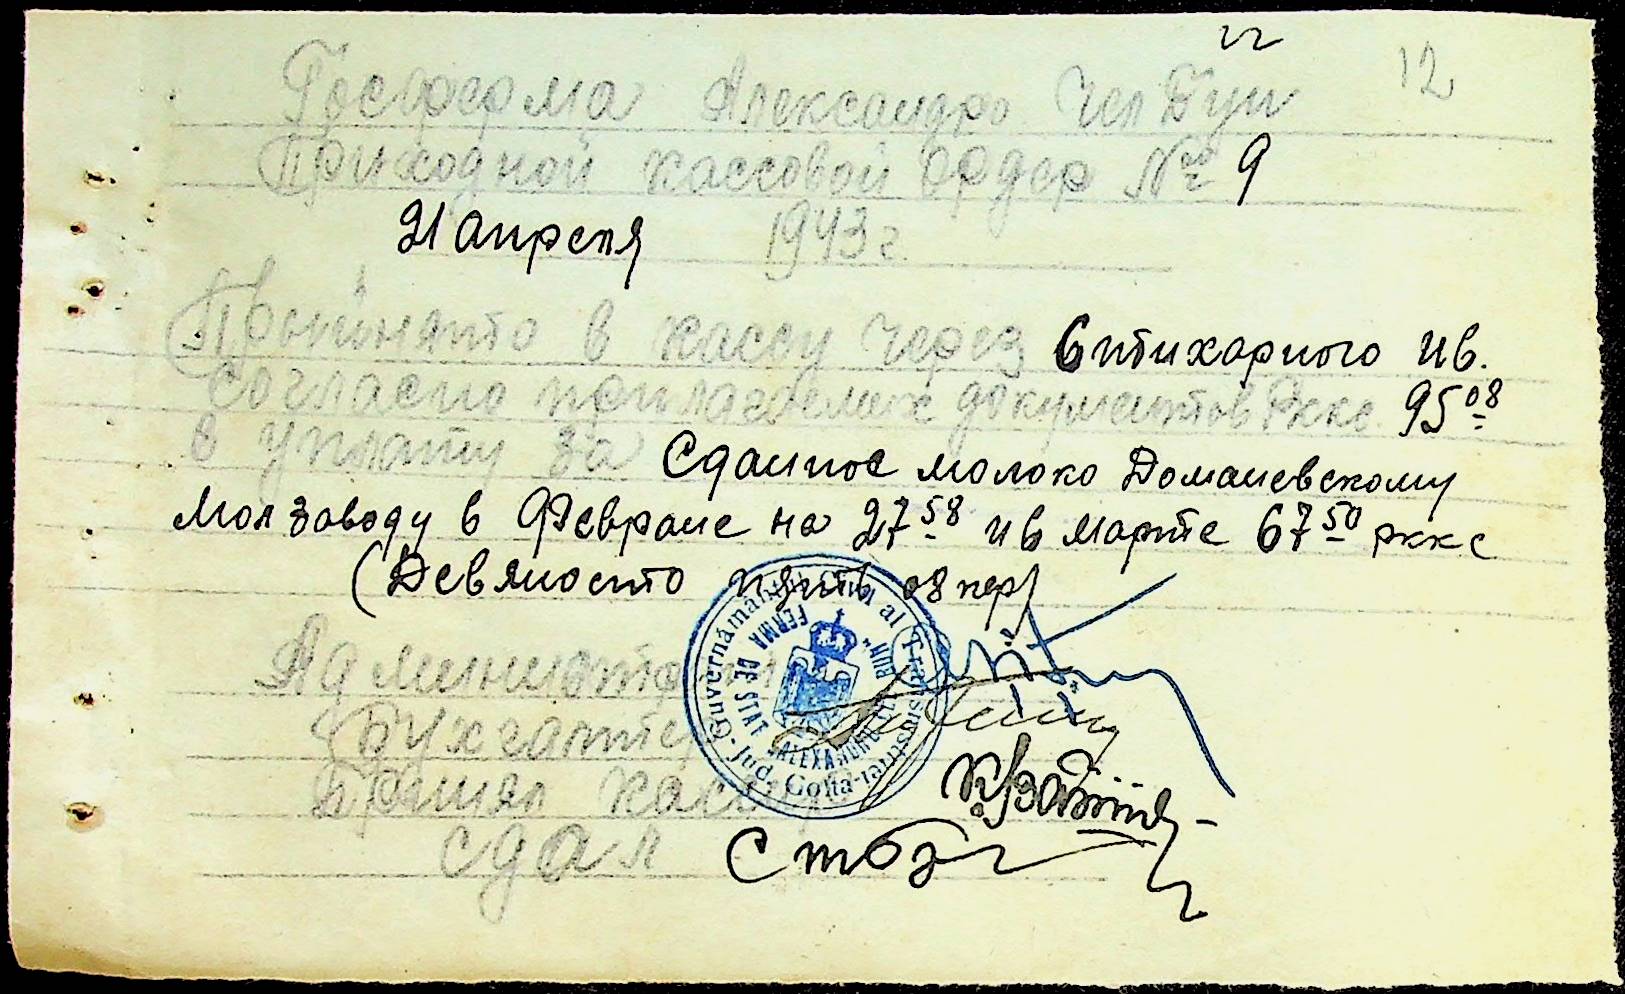 12
Госферма Александро Чел Буй
Приходной кассовой ордер № 9
21 апреля 1943 г.
Принято в кассу через Ив.
Согласно прилагаемих документов Ркке 95 08
в уплату за Сданное молоко Доманевскому
Молзаводу в Феврале на 27 58 и в марте 67 50 рккс
(Девяносто пять 08 пер)
Админист
Бухгалте
Принял Касс
Сдал
Guvernământul al Transnistriei
Jud. Golta
FERMA DE STAT